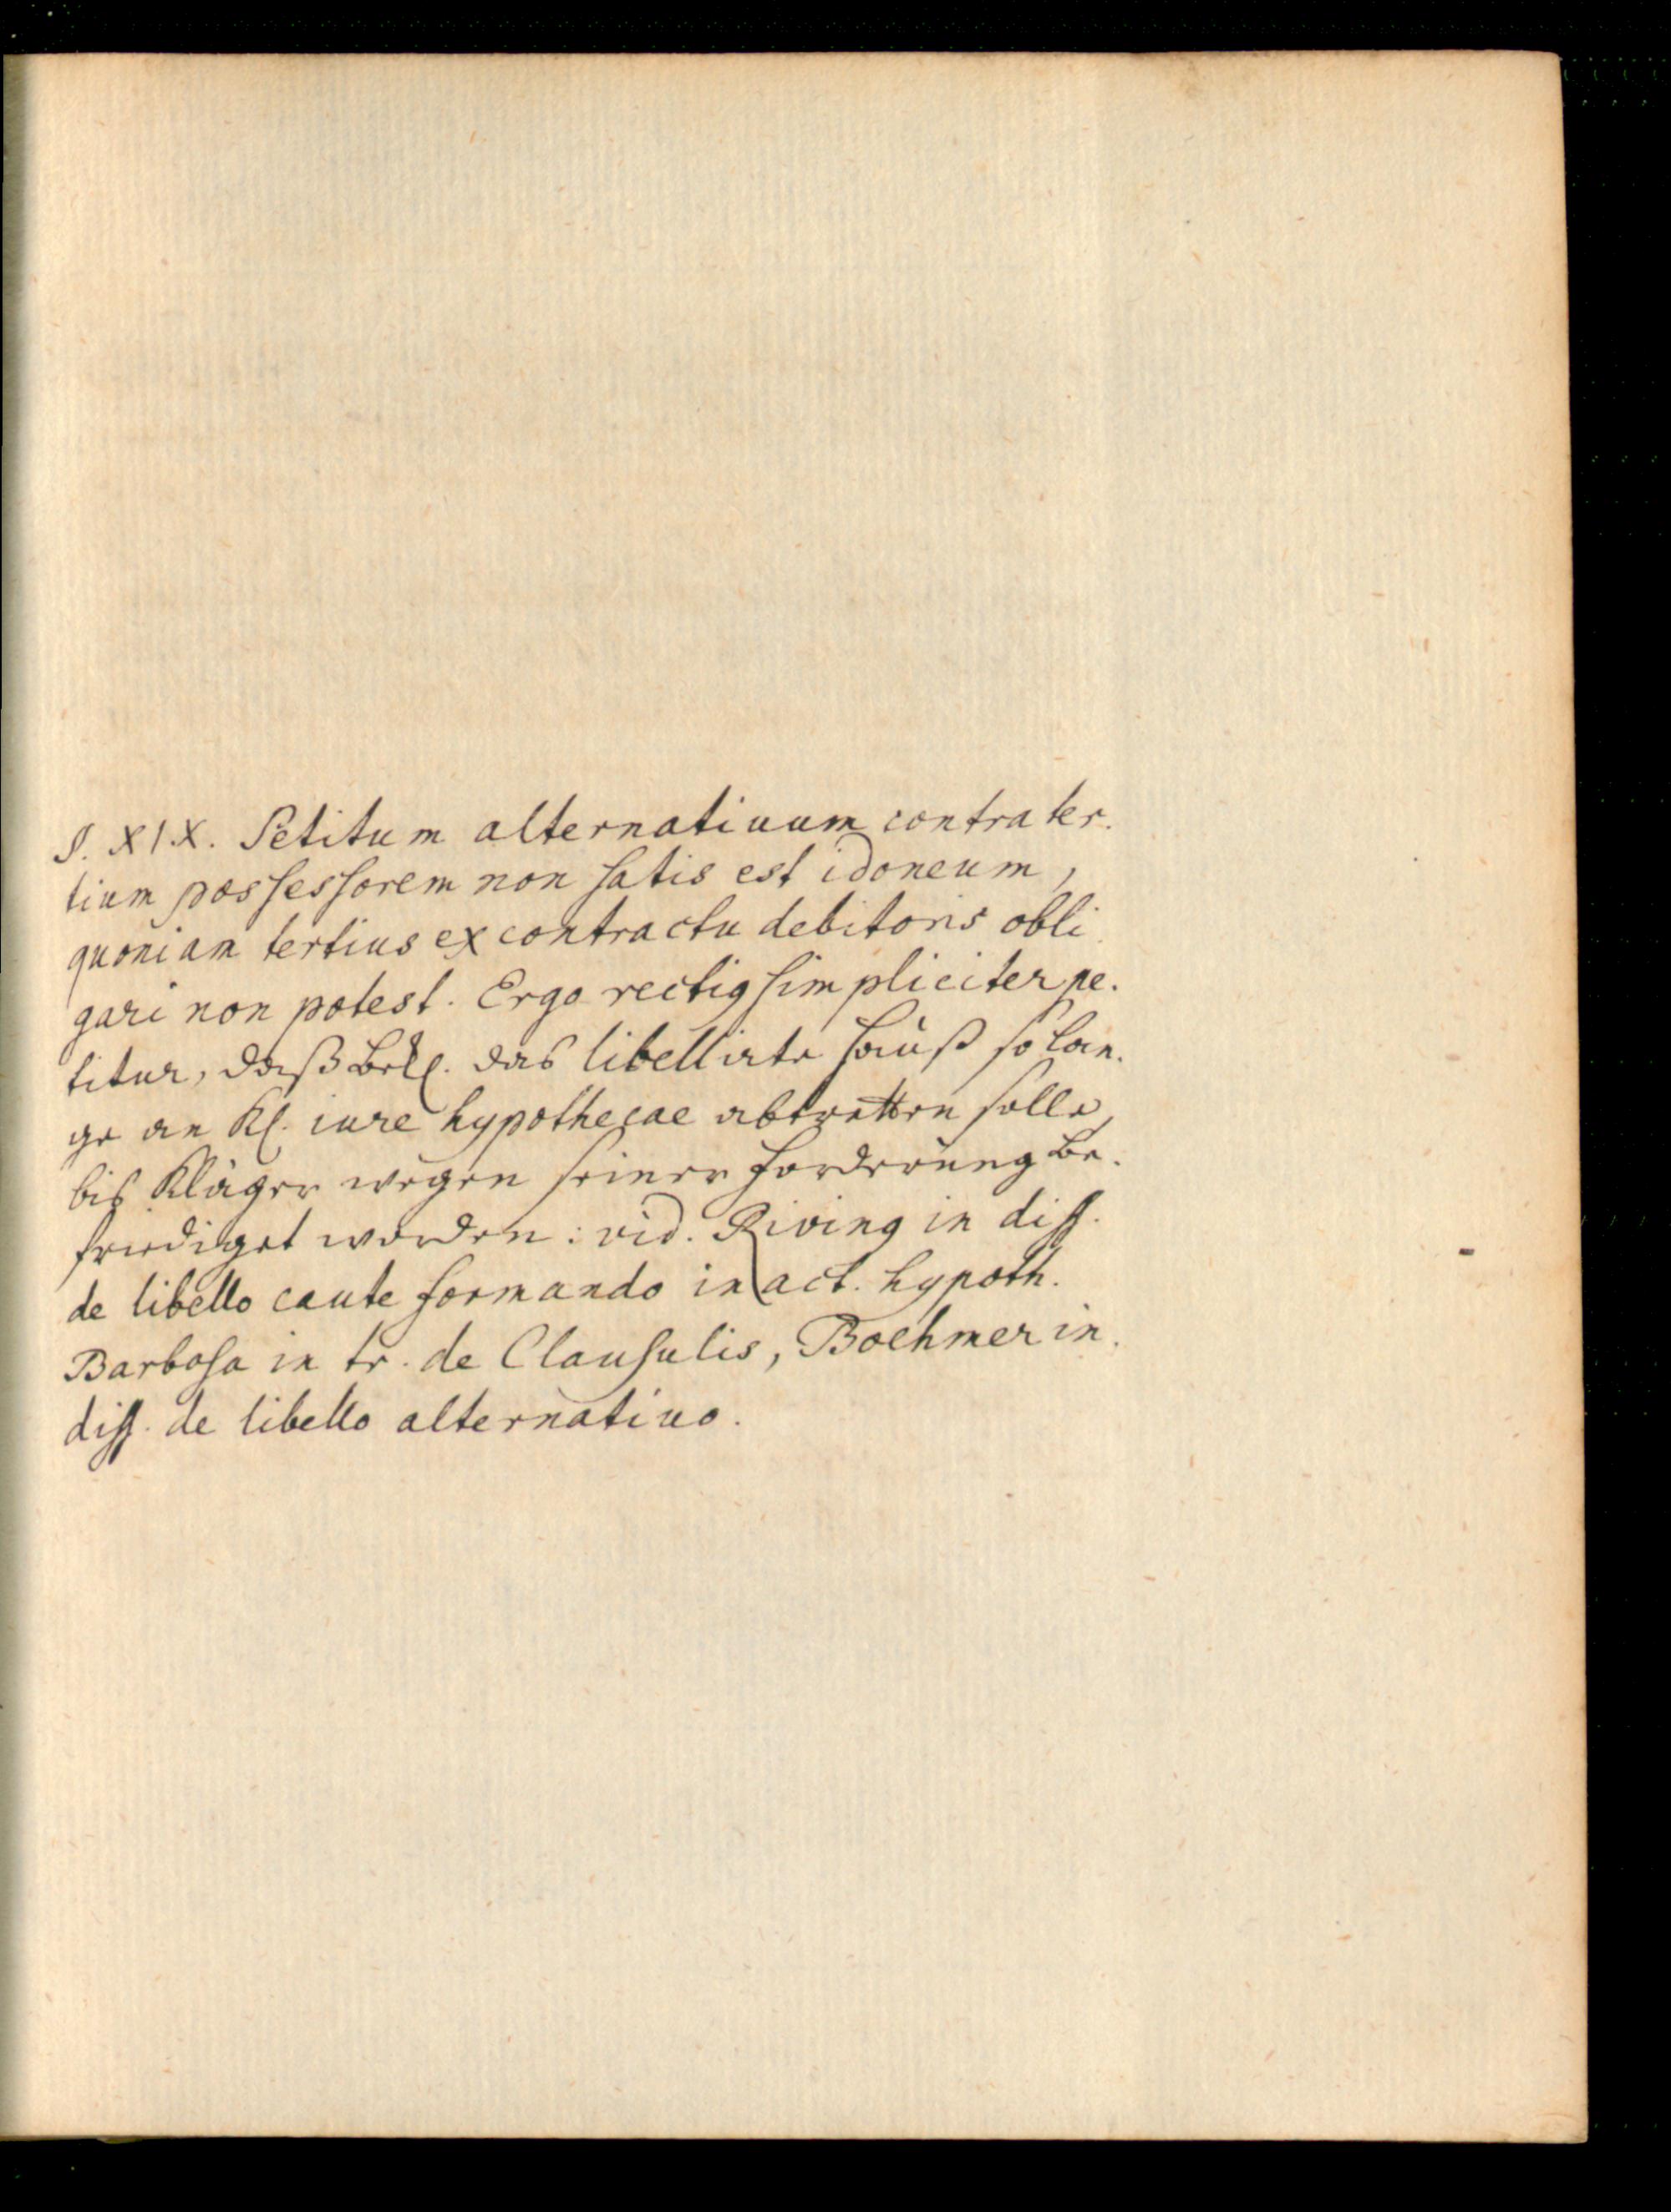 §. XIX. Petitum alternativum contra ter.
tium possessorem non satis est idoneum,
quoniam tertius ex contractu debitoris obli
gari non potest. Ergo rectig simpliciter pe.
titur, daß Bekl. das libellirte Hauß so lan.
ge an Kl. iure hypothecae abtretten solle,
bis Kläger wegen seiner Forderung be.
friediget worden: vid. Riving in diss.
de libello caute formando in act. hypoth.
Barbosa in tr. de Clausulis, Boehmer in.
diss. de libello alternativo.